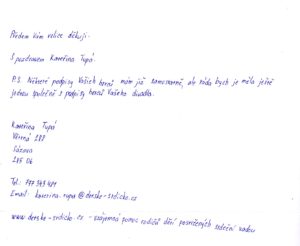 Předem Vám velice děkuji.
S pozdravem Kateřina Tupá
P.S. Některé podpisy Vašich herců mám již samostatně, ale ráda bych je měla ještě
jednou společně s podpisy herců Vašeho divadla.
Kateřina Tupá
Věcná 188
Sázava
285 06
Tel.: 777 343 421
Email: katerina.tupa@detske-srdicko.cz
www.detske-srdicko.cz - vzájemná pomoc rodičů dětí postižených srdeční vadou